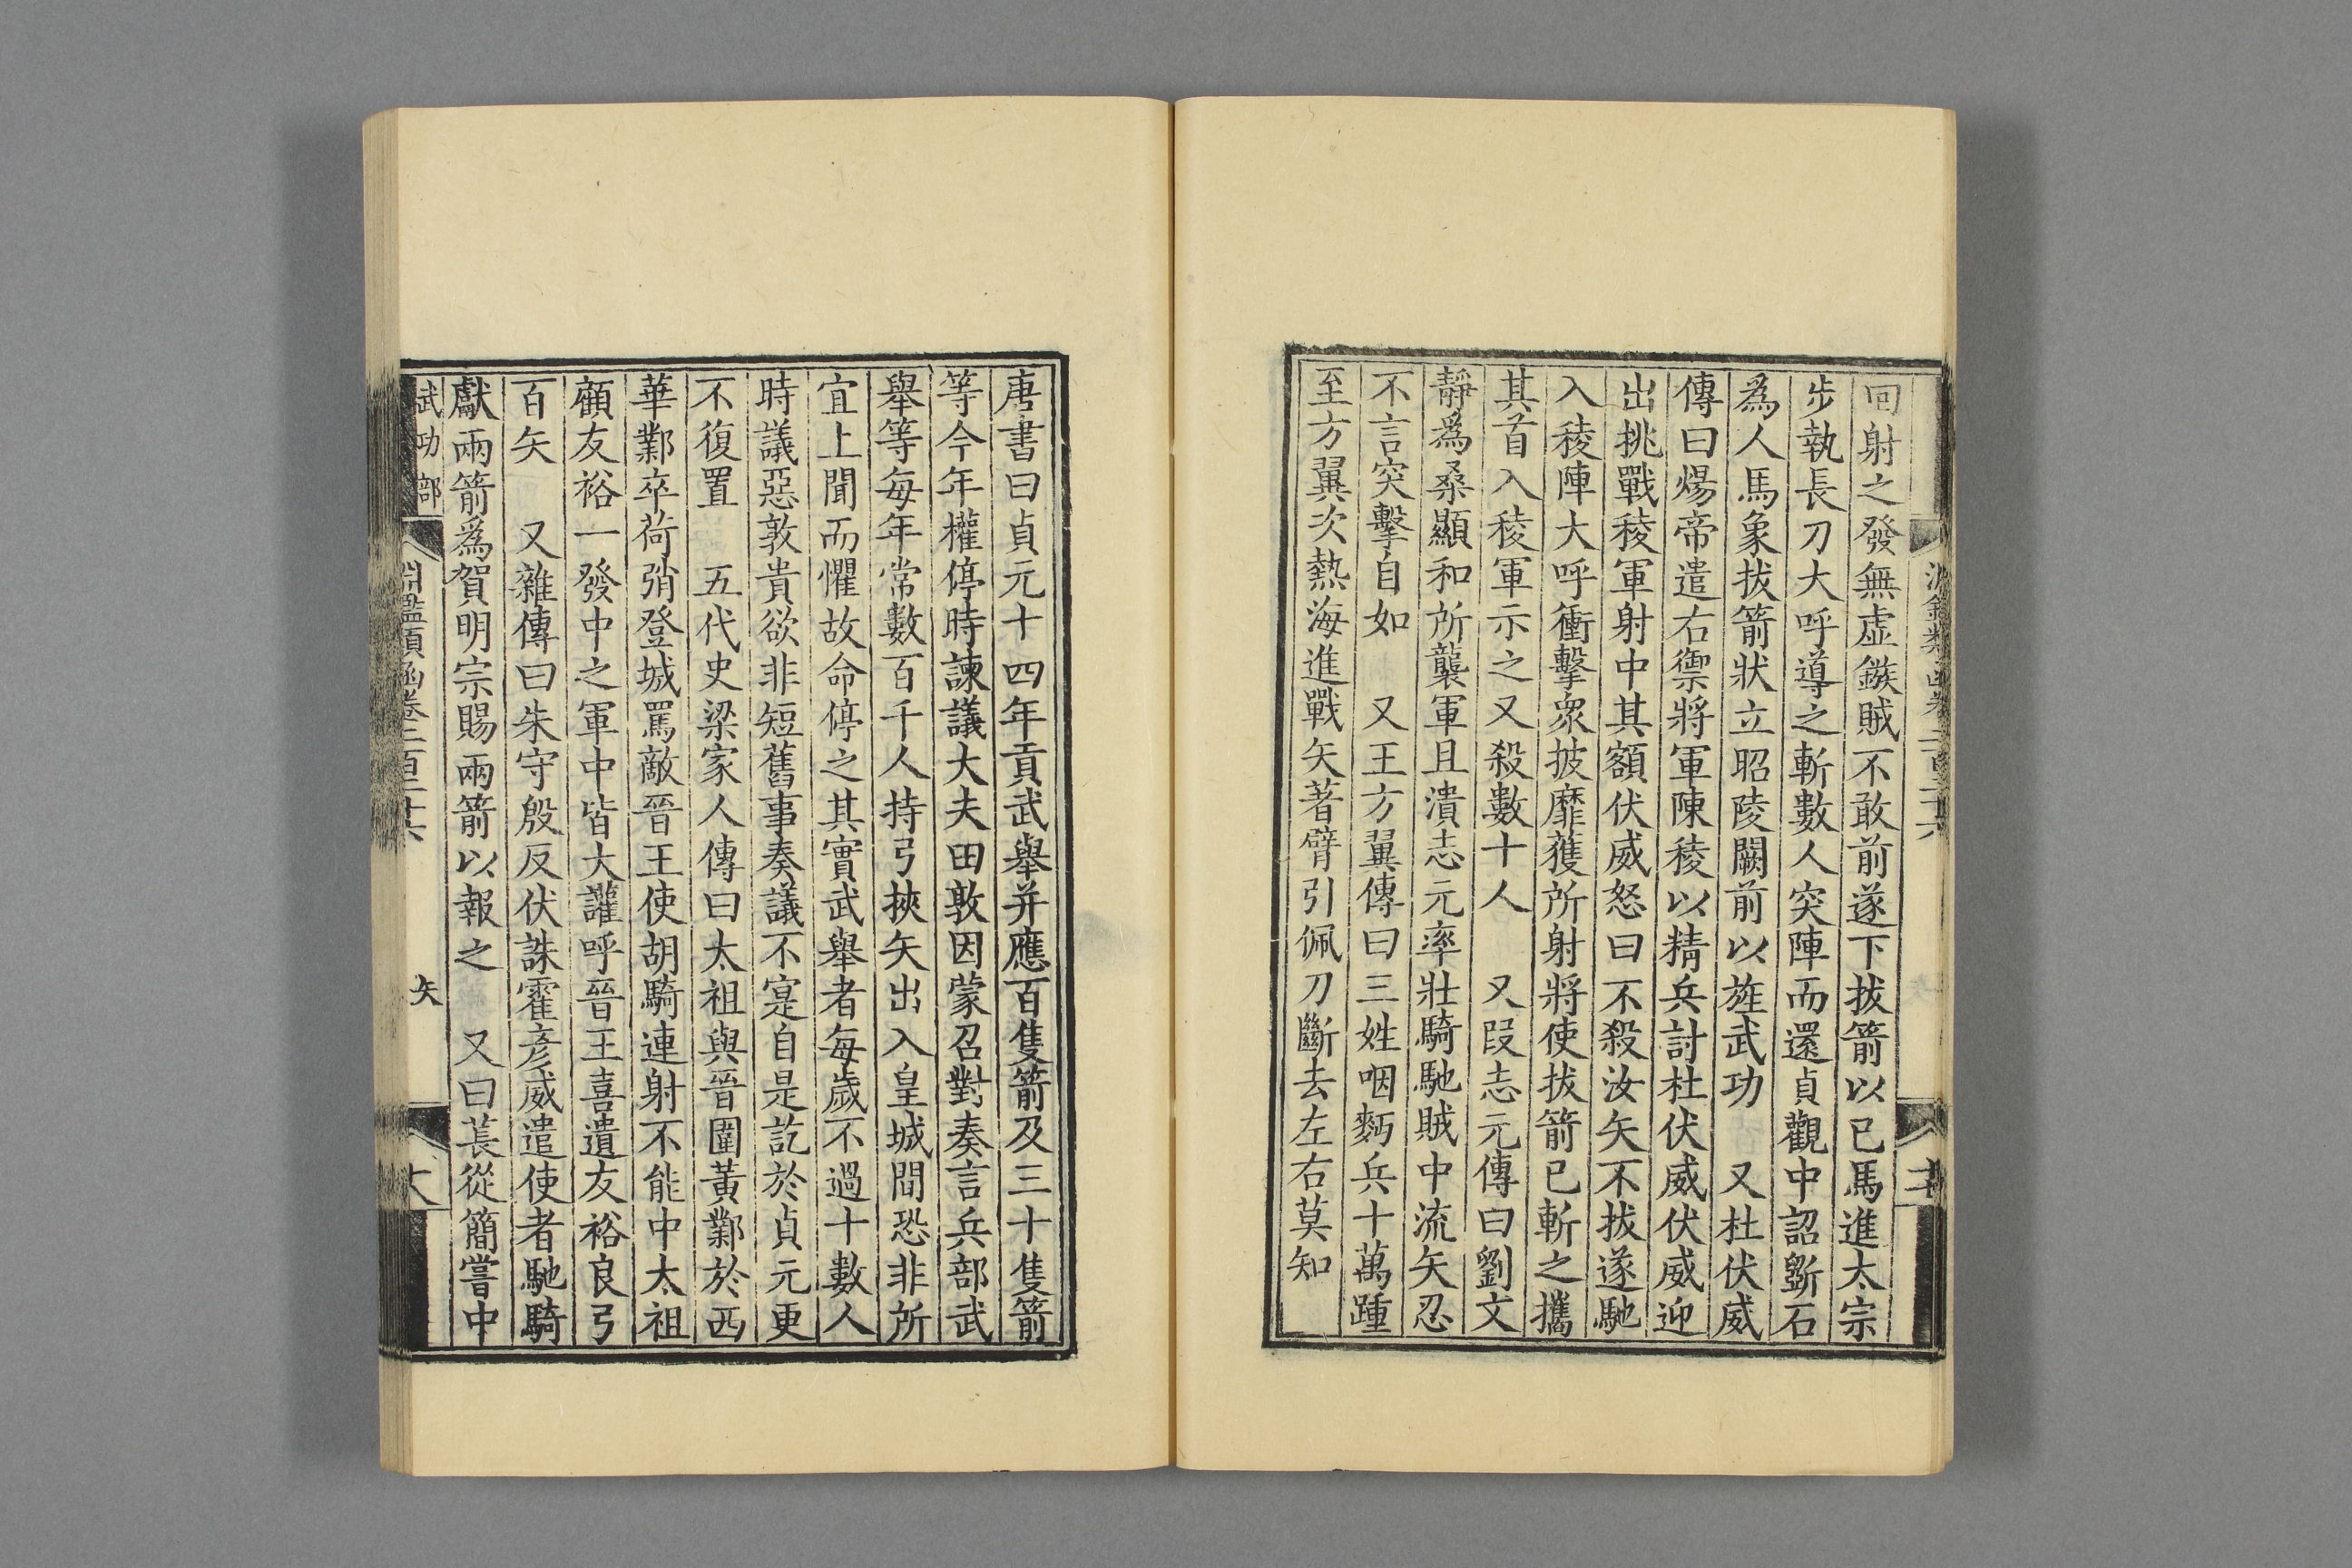 回射之發無虛鏃賊不敢前遂下拔箭以已馬進太宗
步執長刀大呼導之斬數人突陣而還貞觀中詔斵石
爲人馬象拔箭狀立昭陵闕前以旌武功　又杜伏威
傳曰煬帝遣右禦將軍陳稜以精兵討杜伏威伏威迎
出挑戰稜軍射中其額伏威怒曰不殺汝矢不拔遂馳
入稜陣大呼衝擊衆披靡獲所射將使拔箭已斬之攜
其首入稜軍示之又殺數十人　又段志元傳曰劉文
靜爲桑顯和所襲軍且潰志元率壯騎馳賊中流矢忍
不言突擊自如　又王方翼傳曰三姓咽麪兵十萬踵
至方翼次熱海進戰矢著臂引佩刀斷去左右莫知
唐書曰貞元十四年貢武舉并應百隻箭及三十隻箭
等今年權停時諫議大夫田敦因蒙召對奏言兵部武
舉等每年常數百千人持弓挾矢出入皇城間恐非所
宜上聞而懼故命停之其實武舉者每歲不過十數人
時議惡敦貴欲非短舊事奏議不寔自是訖於貞元更
不復置　五代史梁家人傳曰太祖與晉圍黃鄴於西
華鄴卒荷弰登城罵敵晉王使胡騎連射不能中太祖
顧友裕一發中之軍中皆大讙呼晉王喜遺友裕良弓
百矢　又雜傳曰朱守殷反伏誅霍彥威遣使者馳騎
獻兩箭爲賀明宗賜兩箭以報之　又曰萇從簡嘗中
武功部
淵鑑類函卷二百二十六
矢